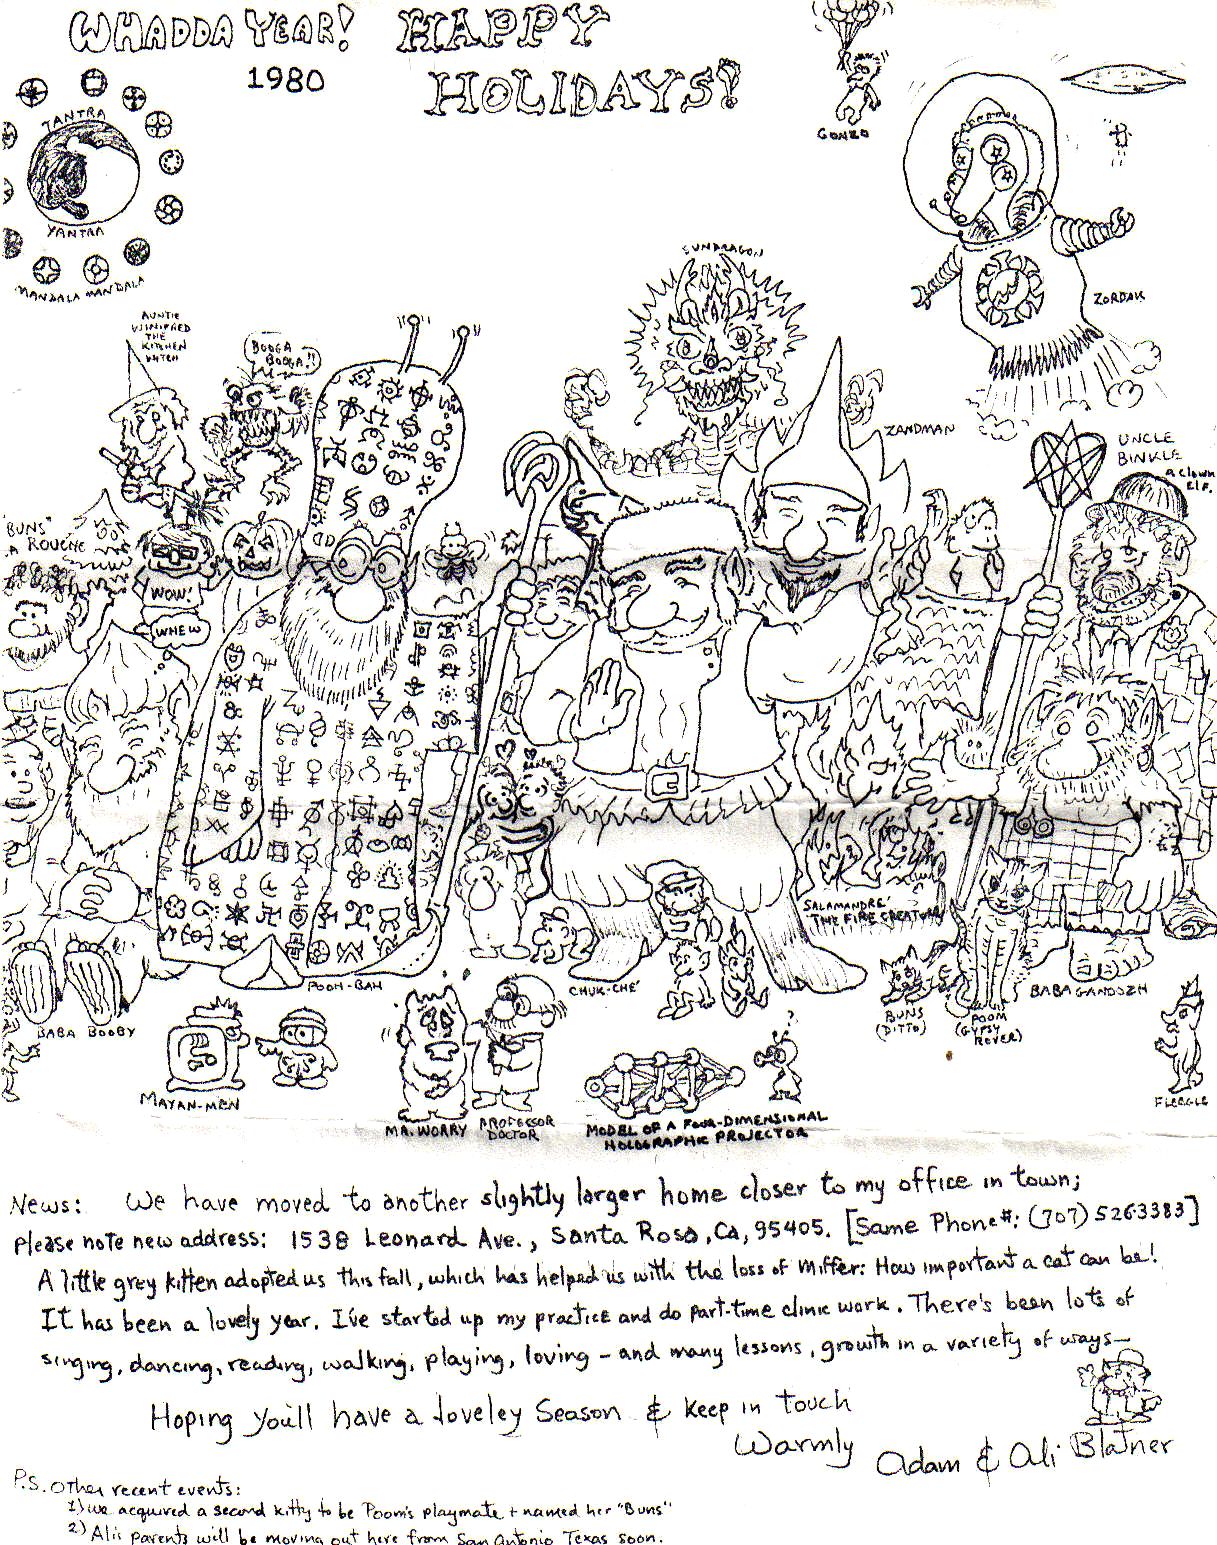 WHADDA YEAR! HAPPY
1980 HOLIDAYS!
GONZO
TANTRA
YANTRA
MANDALA MANDALA
SUNDRAGON
ZORDAK
AUNTIE
WINIFRED
THE
KITCHEN
WITCH
BOOGA
BOOGA!!
ZANDMAN
UNCLE
BINKLE
A Clown
Elf.
"BUNS"
A ROUCHE
WOW!
WHEW
SALAMANDRE
"THE FIRE CREATURE"
POOH-BAH
CHUK-CHE'
BABA BOOBY
BUNS
(DITTO)
POOM
(GYPSY
ROVER)
BABAGANOOZH
MAYAN-MEN
MR. WORRY
PROFESSOR
DOCTOR
?
MODEL OF A FOUR-DIMENSIONAL
HOLOGRAPHIC PROJECTOR
FLEEGLE
News: We have moved to another slightly larger home closer to my office in town;
Please note new address: 1538 Leonard Ave., Santa Rosa, Ca, 95405. [Same Phone #: (707) 5263383]
A little grey kitten adopted us this fall, which has helped us with the loss of Miffer: How important a cat can be!
It has been a lovely year. I've started up my practice and do part-time clinic work. There's been lots of
singing, dancing, reading, walking, playing, loving - and many lessons, growth in a variety of ways—
Hoping you'll have a loveley Season & keep in touch
Warmly
Adam & Ali Blatner
P.S. Other recent events:
1) we acquired a second kitty to be Poom's playmate + named her "Buns"
2) Ali's parents will be moving out here from San Antonio Texas soon.